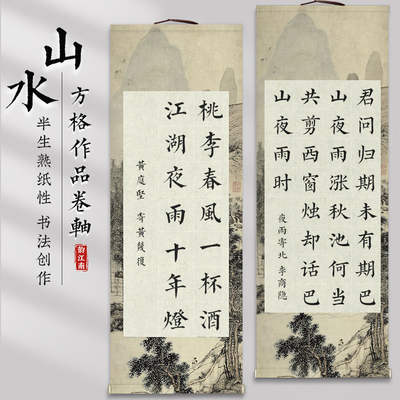 山水
方格作品卷軸
半生熟纸性 书法创作
韵江南
桃李春風一杯酒
江湖夜雨十年燈
黄庭堅 寄黄幾復
君问归期未有期巴
山夜雨涨秋池何当
共剪西窗烛却话巴
山夜雨时
夜雨寄北 李商隐